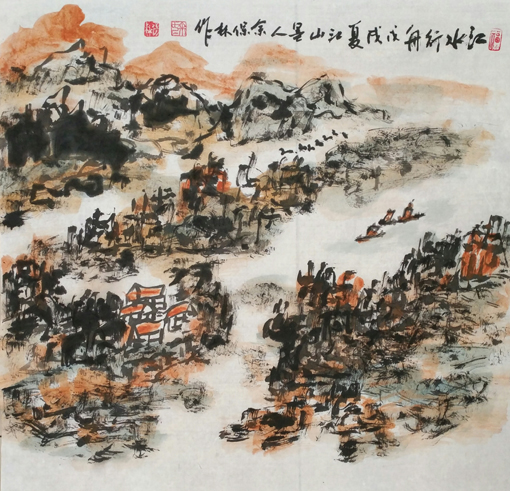 江水行舟戊戌夏江山墨人余保林作